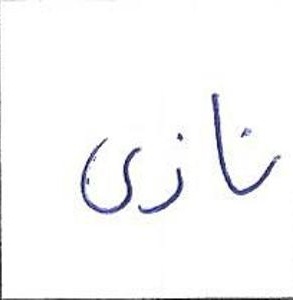 نازی